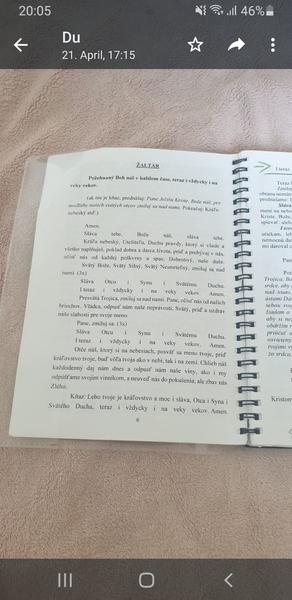 20:05
46%
Du
21. April, 17:15
ŽALTÁR
Požehnaný Boh náš v každom čase, teraz i vždycky i na
veky vekov.
(ak nie je kňaz, prednášaj: Pane Ježišu Kriste, Bože náš, pre
modlitby našich svätých otcov zmiluj sa nad nami. Pokračuj: Kráľu
nebeský atď.)
Amen.
Sláva tebe, Bože náš, sláva tebe.
Kráľu nebeský, Utešiteľu, Duchu pravdy, ktorý si všade a
všetko naplňuješ, poklad dobra a darca života, príď a prebývaj v nás,
očisť nás od každej poškvrny a spas, Dobrotivý, naše duše.
Svätý Bože, Svätý Silný, Svätý Nesmrteľný, zmiluj sa nad
nami. (3x)
Sláva Otcu i Synu i Svätému Duchu.
I teraz i vždycky i na veky vekov. Amen.
Presvätá Trojica, zmiluj sa nad nami. Pane, očisť nás od našich
hriechov. Vládca, odpusť nám naše neprávosti. Svätý, príď a uzdrav
naše slabosti pre svoje meno.
Pane, zmiluj sa. (3x)
Sláva Otcu i Synu i Svätému Duchu.
I teraz i vždycky i na veky vekov. Amen.
Otče náš, ktorý si na nebesiach, posväť sa meno tvoje, príď
kráľovstvo tvoje, buď vôľa tvoja ako v nebi, tak i na zemi. Chlieb náš
každodenný daj nám dnes a odpusť nám naše viny, ako i my
odpúšťame svojim vinníkom, a neuveď nás do pokušenia, ale zbav nás
Zlého.
Kňaz: Lebo tvoje je kráľovstvo a moc i sláva, Otca i Syna i
Svätého Ducha, teraz i vždycky i na veky vekov. Amen.
6
I teraz